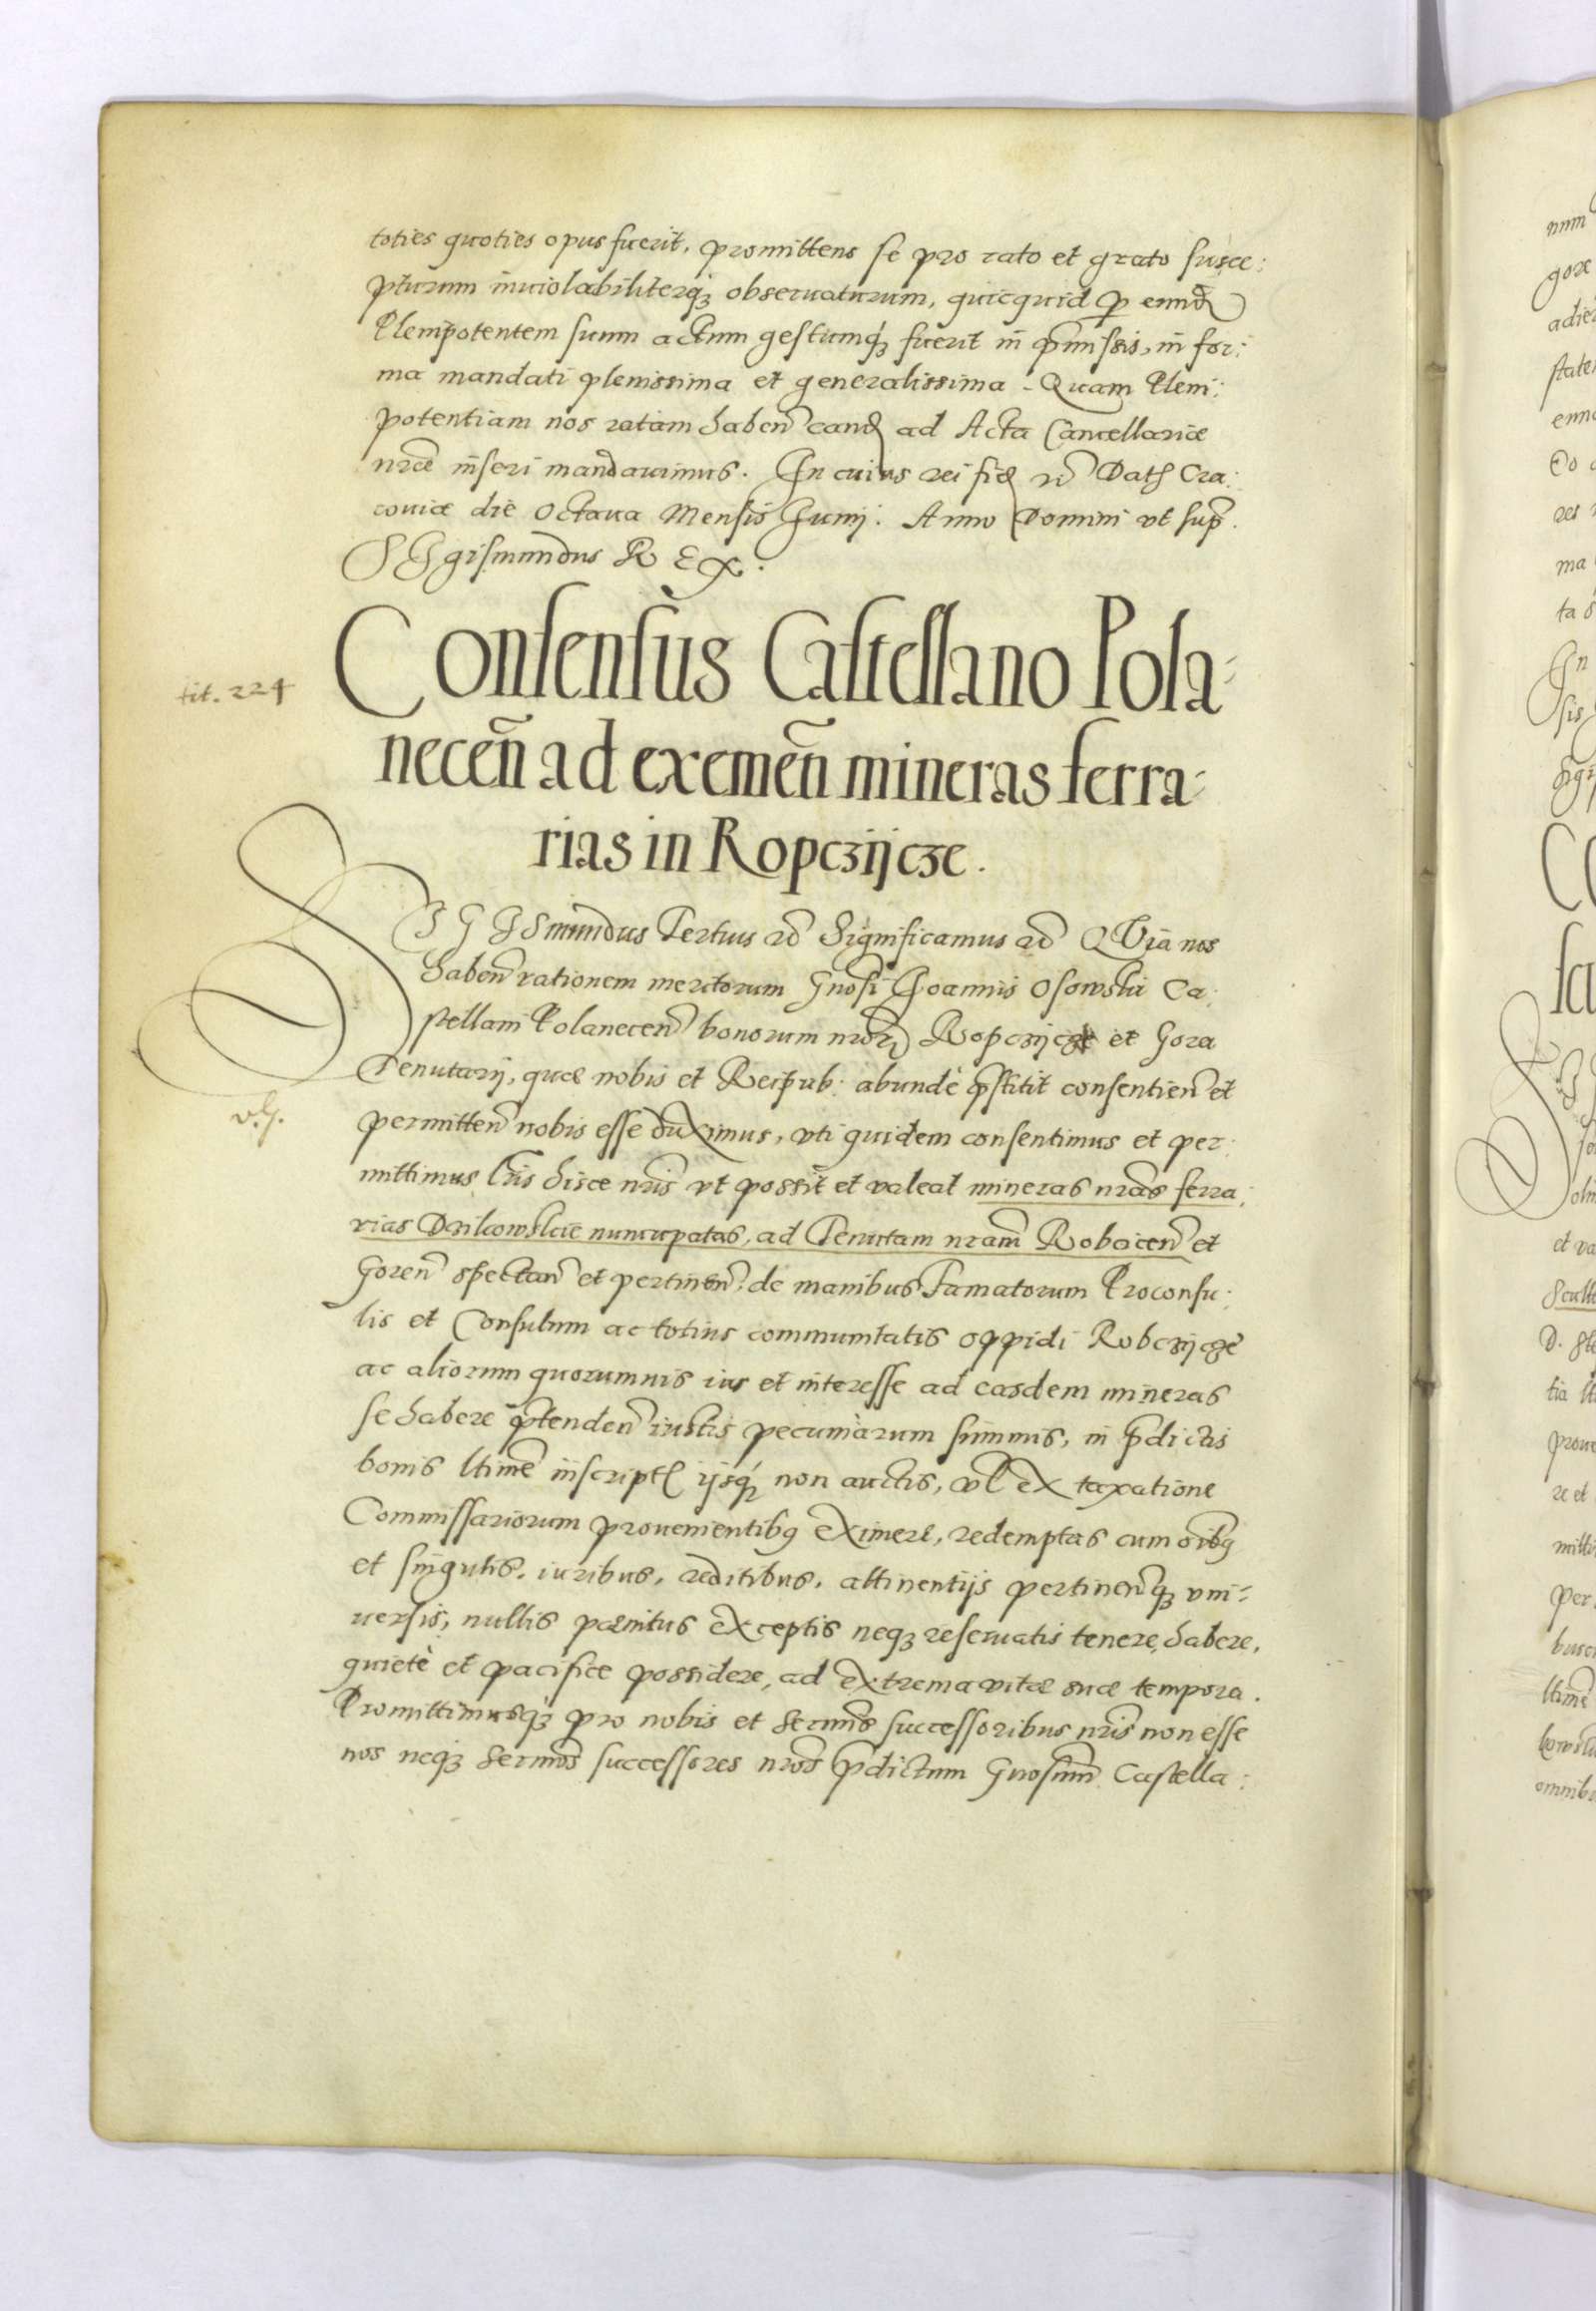 toties quoties opus fuerit, promittens se pro rato et grato susce:
pturum inuiolabiliterq₃ obseruaturum, quicquid p eund
Plenipotentem suum actum gestumq₃ fuerit in pmissis, in for:
ma mandati plenissima et generalissima. Quam Pleni:
potentiam nos ratam haben eand ad Acta Cancellariæ
nræ inseri mandauimus. In cuius rei fid rc Dat Cra:
couiæ die Octaua Mensis Junij. Anno Domini vt sup.
SIgismundus REX.
tit. 224
Consensus Castellano Pola:
necen̄ ad exemen̄ mineras ferra:
rias in Ropczijcze.
SIGISmundus Tertius rc Significamus rc QVia nos
haben rationem meritorum Gnosi Joannis Osowski Ca:
stellani Polanecen bonorum nror Ropczijcze et Gora
Tenutarij, quæ nobis et Reipub: abundè pstitit consentien et
permitten nobis esse duximus, vti quidem consentimus et per:
mittimus lris hisce nris vt possit et valeat mineras nras ferra:
rias nuncupatas, ad Tenutam nram Robcicen et
Goren spectan et pertinen, de manibus Famatorum Proconsu:
lis et Consulum ac totius communitatis oppidi Robczijcze
ac aliorum quorumuis ius et interesse ad easdem mineras
se habere ptenden iustis pecuniarum summis, in pdictis
bonis ltime inscript ijsq₃ non auctis, vl ex taxatione
Commissariorum prouenientibus eximere, redemptas cum oibus
et singulis, iuribus, reditibus, attinentijs pertinenq₃ vni:
uersis, nullis pœnitus exceptis neq₃ reseruatis tenere, habere,
quietè et pacifice possidere, ad extrema vitæ suæ tempora.
Promittimusq₃ pro nobis et Sermis successoribus nris non esse
nos neq₃ Sermos successores nros pdictum Gnosum Castella: